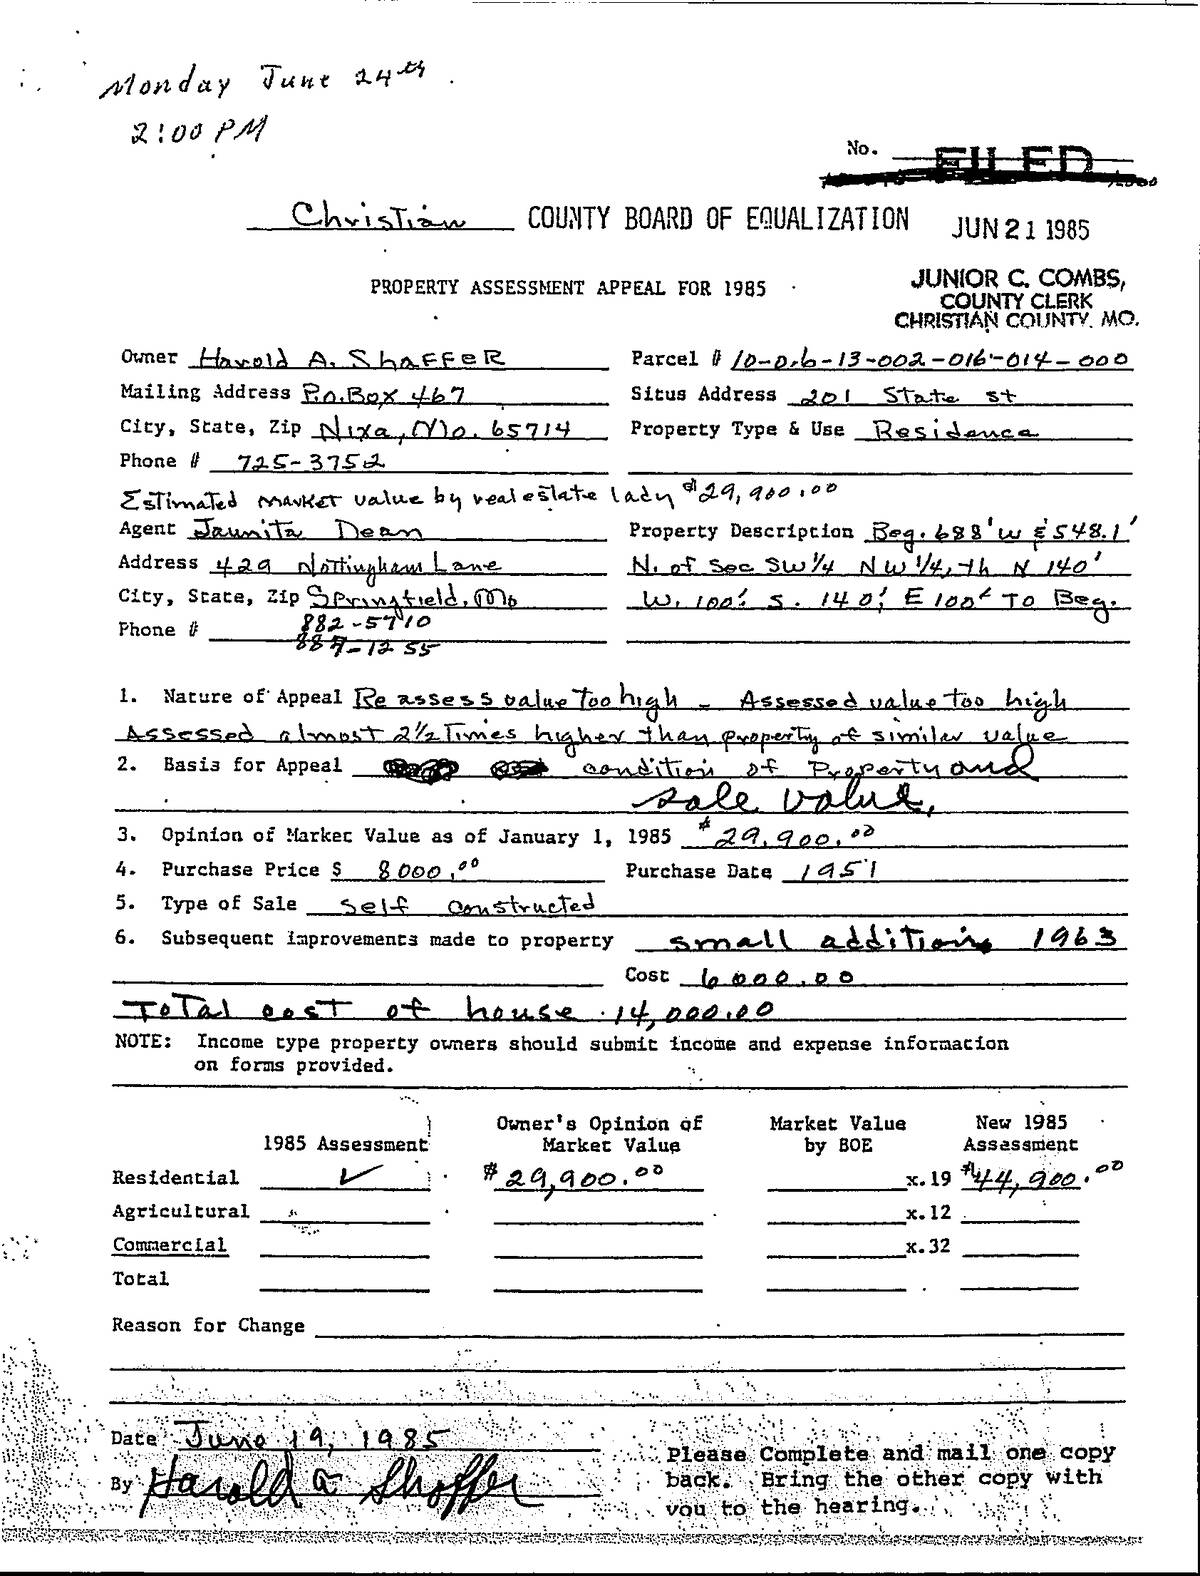 Monday June 24th
2:00 PM
No. FILED
Christian COUNTY BOARD OF EQUALIZATION JUN 21 1985
PROPERTY ASSESSMENT APPEAL FOR 1985
JUNIOR C. COMBS,
COUNTY CLERK
CHRISTIAN COUNTY, MO.
Owner Harold A. Shaffer Parcel # 10-0.6-13-002-016-014-000
Mailing Address P.O. Box 467 Situs Address 201 State St
City, State, Zip Nixa, Mo. 65714 Property Type & Use Residence
Phone # 725-3752
Estimated market value by real estate lady $29,900.00
Agent Jaunita Dean Property Description Beg. 688' W & 548.1'
Address 429 Nottingham Lane N. of Soc SW 1/4 NW 1/4, th N 140'
City, State, Zip Springfield, Mo W. 100', S. 140', E 100' To Beg.
Phone # 882-5710
887-1255
1. Nature of Appeal Re assess value too high - Assessed value too high
Assessed almost 2½ Times higher than property of similar value
2. Basis for Appeal condition of Property and
sale value.
3. Opinion of Market Value as of January 1, 1985 $29,900.00
4. Purchase Price $ 8000.00 Purchase Date 1951
5. Type of Sale self constructed
6. Subsequent improvements made to property small addition 1963
Cost 6000.00
Total cost of house 14,000.00
NOTE: Income type property owners should submit income and expense information
on forms provided.
1985 Assessment Owner's Opinion of Market Value Market Value by BOE New 1985 Assessment
Residential ✓ $29,900.00 x.19 $44,900.00
Agricultural x.12
Commercial x.32
Total
Reason for Change
Date June 19, 1985
By Harold A Shaffer
Please Complete and mail one copy
back. Bring the other copy with
you to the hearing.